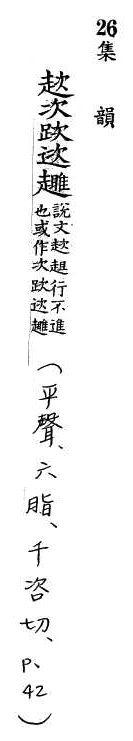 26
集韻
趑次䟸𨒮趡
說文趑趄行不進
也或作次䟸𨒮趡
(平聲、六脂、千咨切、P、42)